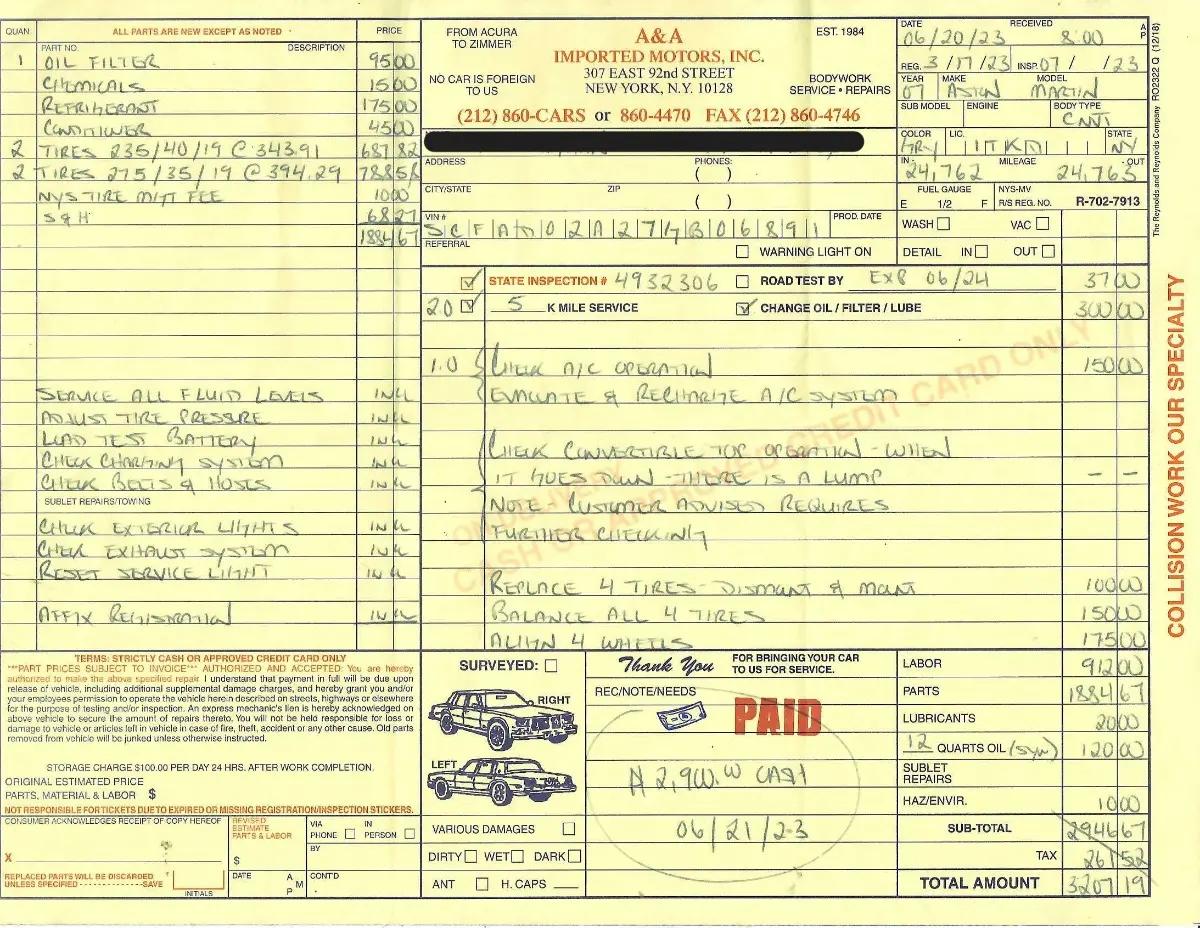 QUAN. ALL PARTS ARE NEW EXCEPT AS NOTED PRICE
PART NO. DESCRIPTION
1 OIL FILTER 95 00
CHEMICALS 15 00
REFRIGERANT 175 00
CONDITIONER 45 00
2 TIRES 235/40/19 @ 343.91 687 82
2 TIRES 275/35/19 @ 394.29 788 58
NYS TIRE MGT FEE 10 00
S & H 68 27
1884 67
SERVICE ALL FLUID LEVELS INCL
ADJUST TIRE PRESSURE INCL
LOAD TEST BATTERY INCL
CHECK CHARGING SYSTEM INCL
CHECK BELTS & HOSES INCL
SUBLET REPAIRS/TOWING
CHECK EXTERIOR LIGHTS INCL
CHECK EXHAUST SYSTEM INCL
RESET SERVICE LIGHT INCL
AFFIX REGISTRATION INCL
FROM ACURA TO ZIMMER
A&A
IMPORTED MOTORS, INC.
EST. 1984
NO CAR IS FOREIGN TO US
307 EAST 92nd STREET
NEW YORK, N.Y. 10128
BODYWORK SERVICE • REPAIRS
(212) 860-CARS or 860-4470 FAX (212) 860-4746
ADDRESS PHONES:
( )
CITY/STATE ZIP
( )
VIN # SCFAD02A27GB06891 PROD. DATE
REFERRAL
WARNING LIGHT ON
DATE RECEIVED
06/20/23 8:00 A P
REG. 3/17/23 INSP. 07/ /23
YEAR MAKE MODEL
07 ASTON MARTIN
SUB MODEL ENGINE BODY TYPE
CNVT
COLOR LIC. STATE
GRY NY
IN MILEAGE OUT
24,762 24,765
FUEL GAUGE NYS-MV
E 1/2 F R/S REG. NO. R-702-7913
WASH VAC
DETAIL IN OUT
The Reynolds and Reynolds Company RO2322 Q (12/18)
STATE INSPECTION # 4932306 ROAD TEST BY EXP 06/24 37 00
2.0 5 K MILE SERVICE CHANGE OIL / FILTER / LUBE 300 00
1.0 CHECK A/C OPERATION 150 00
EVACUATE & RECHARGE A/C SYSTEM
CHECK CONVERTIBLE TOP OPERATION - WHEN
IT GOES DOWN - THERE IS A LUMP – –
NOTE CUSTOMER ADVISED REQUIRES
FURTHER CHECKING
ON DELIVERY
CASH OR APPROVED CREDIT CARD ONLY
REPLACE 4 TIRES - DISMOUNT & MOUNT 100 00
BALANCE ALL 4 TIRES 150 00
ALIGN 4 WHEELS 175 00
COLLISION WORK OUR SPECIALTY
TERMS: STRICTLY CASH OR APPROVED CREDIT CARD ONLY
***PART PRICES SUBJECT TO INVOICE*** AUTHORIZED AND ACCEPTED: You are hereby
authorized to make the above specified repair. I understand that payment in full will be due upon
release of vehicle, including additional supplemental damage charges, and hereby grant you and/or
your employees permission to operate the vehicle herein described on streets, highways or elsewhere
for the purpose of testing and/or inspection. An express mechanic's lien is hereby acknowledged on
above vehicle to secure the amount of repairs thereto. You will not be held responsible for loss or
damage to vehicle or articles left in vehicle in case of fire, theft, accident or any other cause. Old parts
removed from vehicle will be junked unless otherwise instructed.
STORAGE CHARGE $100.00 PER DAY 24 HRS. AFTER WORK COMPLETION.
ORIGINAL ESTIMATED PRICE
PARTS, MATERIAL & LABOR $
NOT RESPONSIBLE FOR TICKETS DUE TO EXPIRED OR MISSING REGISTRATION/INSPECTION STICKERS.
CONSUMER ACKNOWLEDGES RECEIPT OF COPY HEREOF
X
REPLACED PARTS WILL BE DISCARDED
UNLESS SPECIFIED - - - - - - - - - - - - - - -SAVE
INITIALS
REVISED ESTIMATE PARTS & LABOR
$
DATE A M P
VIA PHONE IN PERSON
BY
CONT'D
SURVEYED:
RIGHT
LEFT
VARIOUS DAMAGES
DIRTY WET DARK
ANT H. CAPS
Thank You FOR BRINGING YOUR CAR TO US FOR SERVICE.
REC/NOTE/NEEDS
PAID
2,900.00 CASH
06/21/23
LABOR 912 00
PARTS 1884 67
LUBRICANTS 20 00
12 QUARTS OIL (SYN) 120 00
SUBLET REPAIRS
HAZ/ENVIR. 10 00
SUB-TOTAL 2946 67
TAX 261 52
TOTAL AMOUNT 3207 19